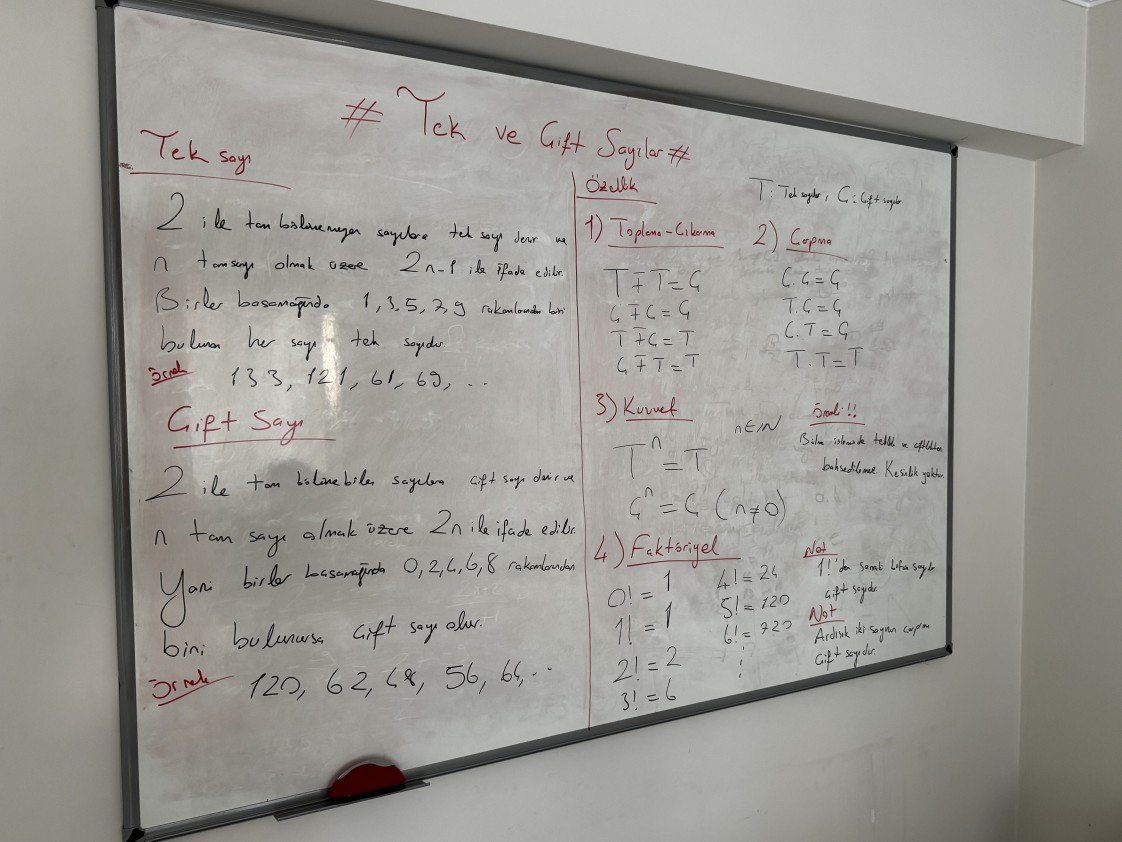 # Tek ve Çift Sayılar #
Tek sayı
2 ile tam bölünemeyen sayılara tek sayı denir ve
n tamsayı olmak üzere 2n-1 ile ifade edilir.
Birler basamağında 1, 3, 5, 7, 9 rakamlarından biri
bulunan her sayı tek sayıdır.
Örnek 133, 121, 61, 69, ...
Çift Sayı
2 ile tam bölünebilen sayılara çift sayı denir ve
n tam sayı olmak üzere 2n ile ifade edilir.
Yani birler basamağında 0, 2, 4, 6, 8 rakamlarından
biri bulunursa çift sayı olur.
Örnek 120, 62, 48, 56, 64, ...
Özellik
T: Tek sayılar, Ç: Çift sayılar
1) Toplama-Çıkarma
T ∓ T = Ç
Ç ∓ Ç = Ç
T ∓ Ç = T
Ç ∓ T = T
2) Çarpma
Ç.Ç = Ç
T.Ç = Ç
Ç.T = Ç
T.T = T
3) Kuvvet
n∈N
Tⁿ = T
Çⁿ = Ç (n≠0)
Önemli!!
Bölme işleminde teklik ve çiftlikten
bahsedilemez. Kesinlik yoktur.
4) Faktöriyel
0! = 1
1! = 1
2! = 2
3! = 6
4! = 24
5! = 120
6! = 720
Not
1!'den sonraki bütün sayılar
çift sayıdır.
Not
Ardışık iki sayının çarpımı
çift sayıdır.